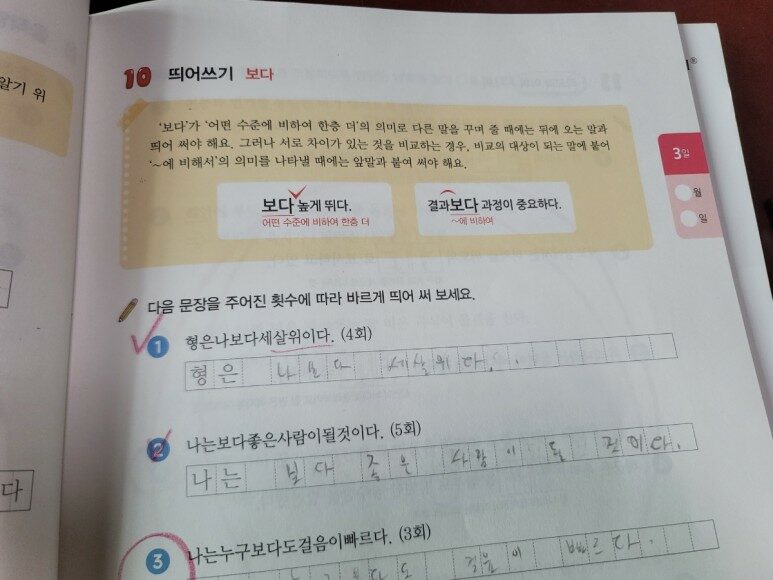 말기 위
10 띄어쓰기 보다
‘보다’가 ‘어떤 수준에 비하여 한층 더’의 의미로 다른 말을 꾸며 줄 때에는 뒤에 오는 말과
띄어 써야 해요. 그러나 서로 차이가 있는 것을 비교하는 경우, 비교의 대상이 되는 말에 붙어
‘~에 비해서’의 의미를 나타낼 때에는 앞말과 붙여 써야 해요.
보다 높게 뛰다.
어떤 수준에 비하여 한층 더
결과보다 과정이 중요하다.
~에 비하여
3일
월
일
다음 문장을 주어진 횟수에 따라 바르게 띄어 써 보세요.
1 형은나보다세살위이다. (4회)
형은 나보다 세살위다.
2 나는보다좋은사람이될것이다. (5회)
나는 보다 좋은 사람이 될
다
3 나는누구보다도걸음이빠르다. (3회)
걸음이 빠르다.